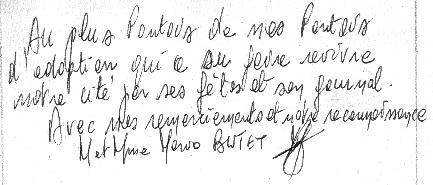 Au plus Pontois de nos Pontois
d'adoption qui a su faire revivre
notre cité par ses fêtes et son journal.
Avec mes remerciements et notre reconnaissance
M et Mme